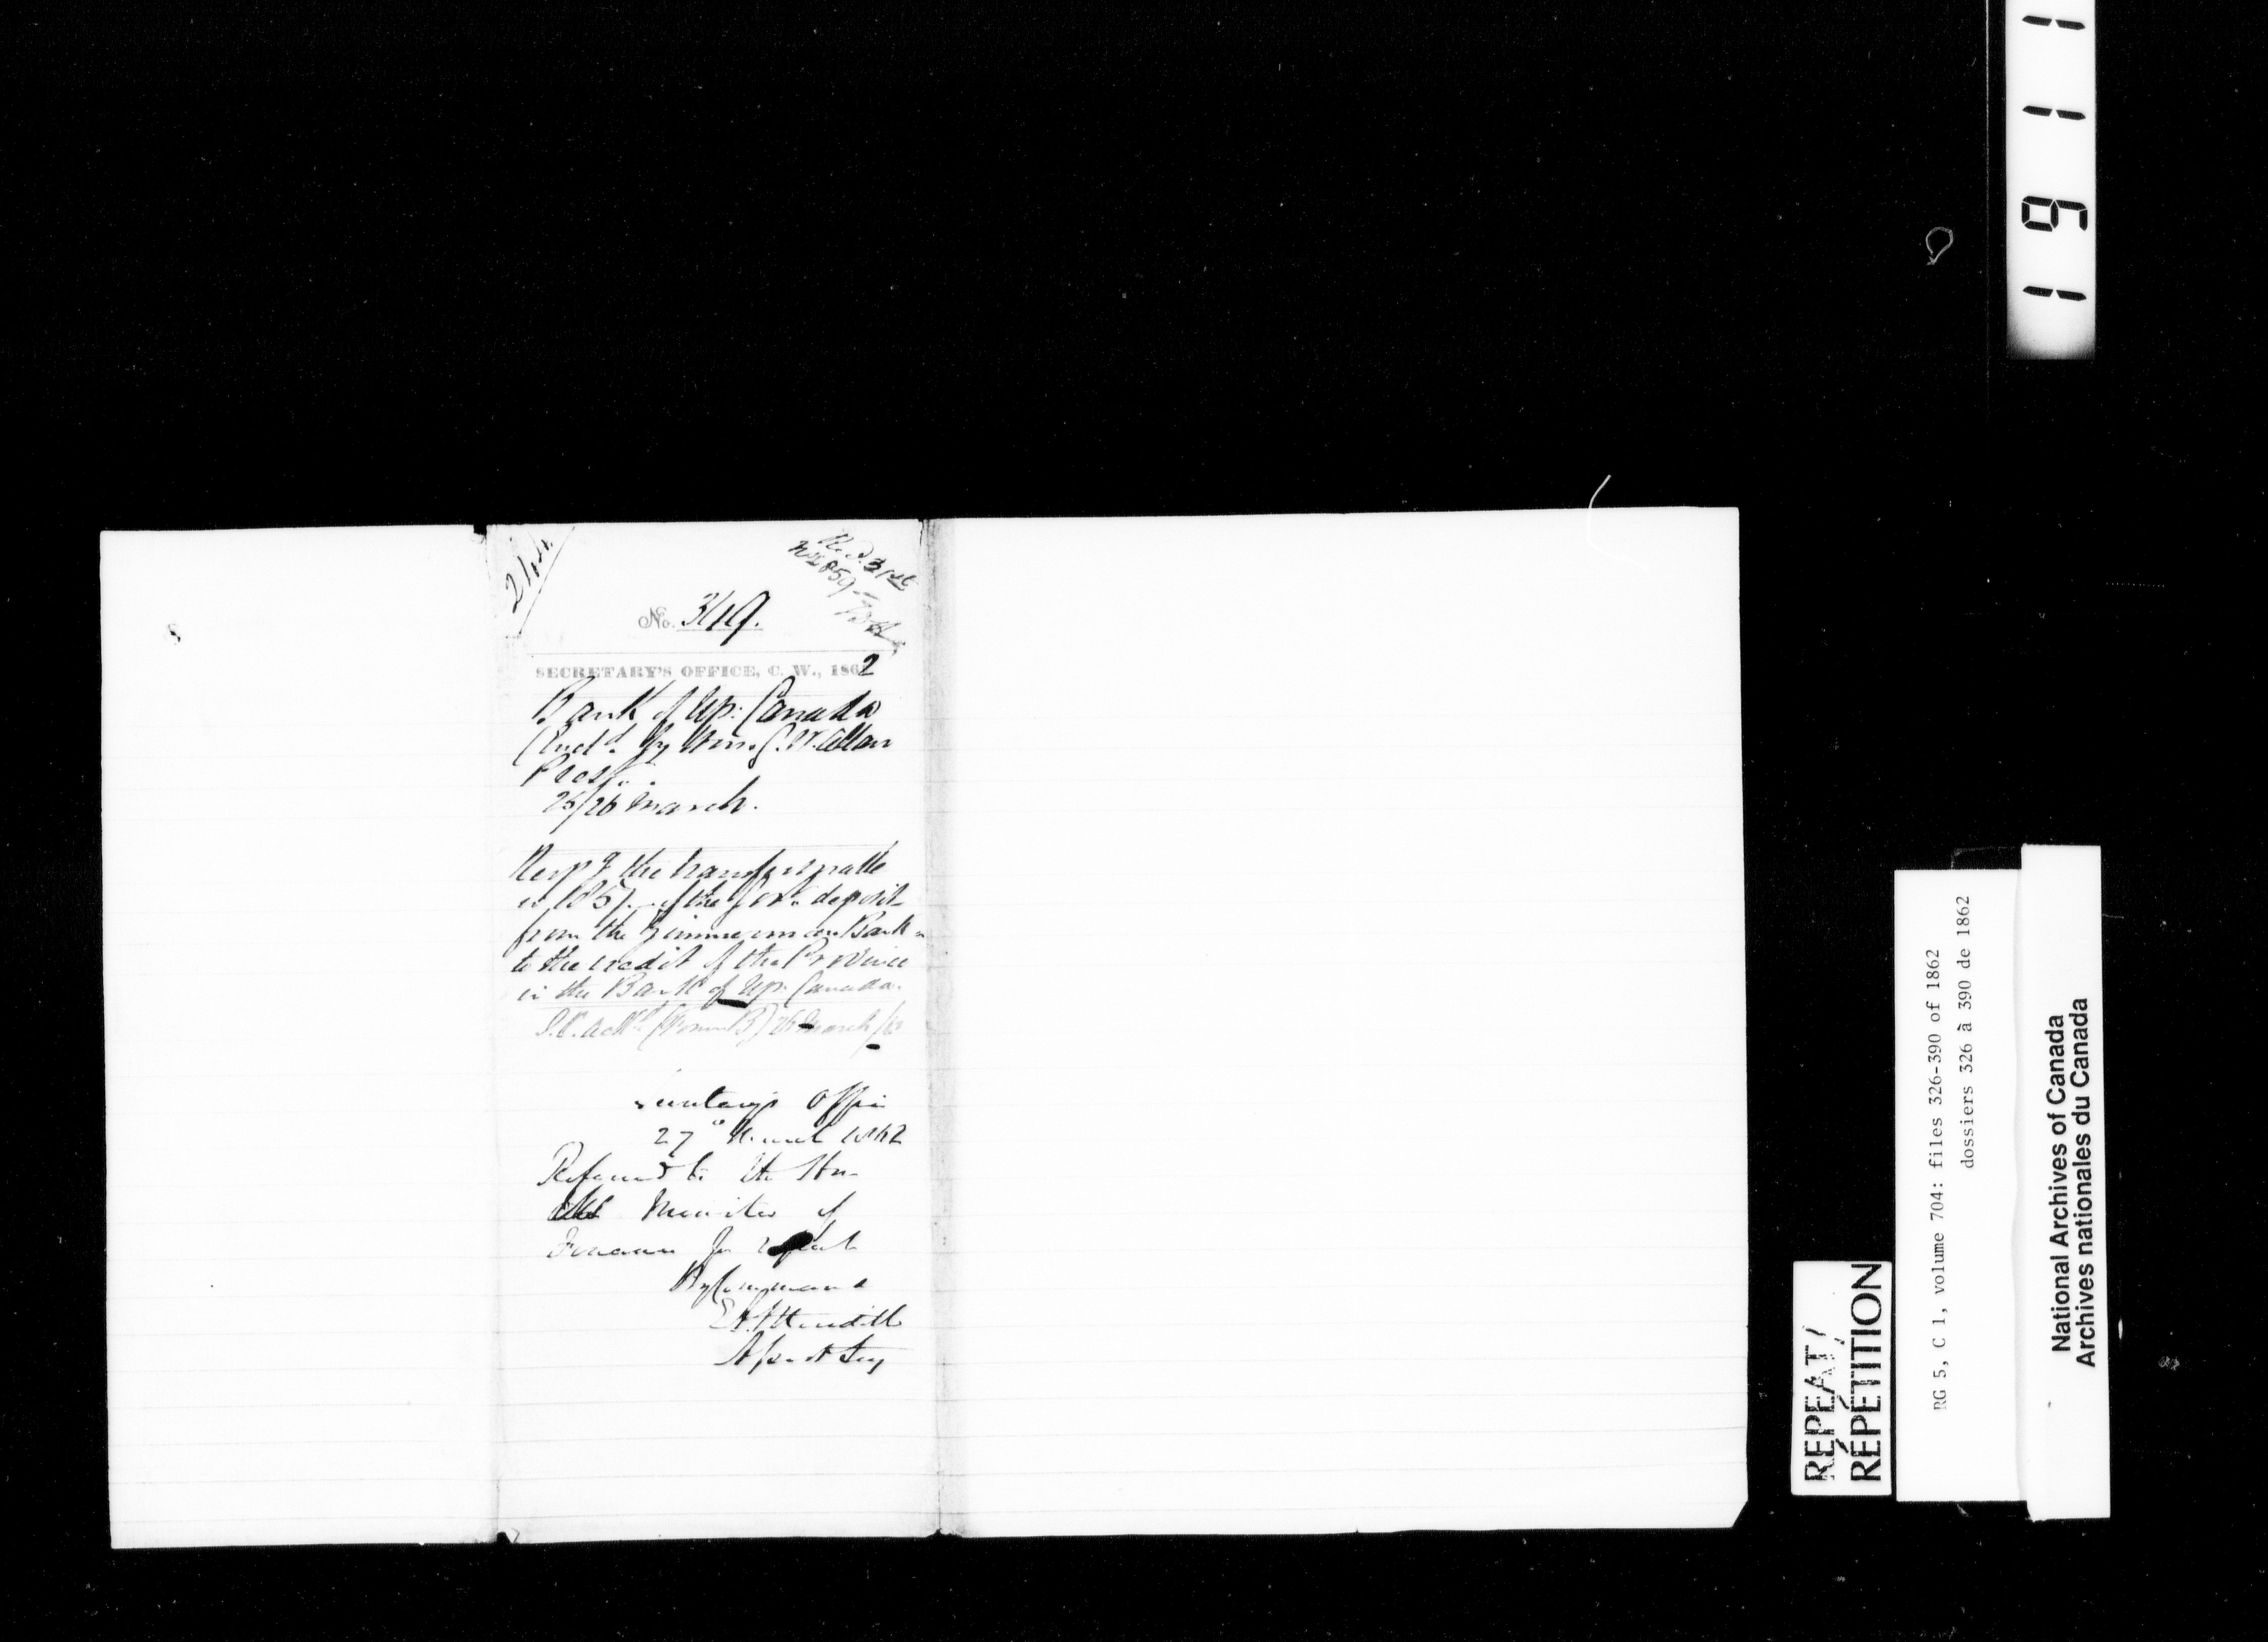 244
Recd. 31st
No. 349.
SECRETARY'S OFFICE, C. W., 1862
Bank of Up: Canada
(Encld. by Hon. G. W. Allan
Prest.
25/26 March.
Resp'g the transfer made
in 1857 of the Gov. deposit
from the Zimmerman Bank
to the credit of the Province
in the Bank of Up. Canada.
(Form B) 26 March /62
Secretary's Office
27" March 1862
Referred to the Hon-
able Minister of
Finance for report
By Command
E. A. Meredith
Asst Secy
1911
REPEAT/
RÉPÉTITION
RG 5, C 1, volume 704: files 326-390 of 1862
dossiers 326 à 390 de 1862
National Archives of Canada
Archives nationales du Canada